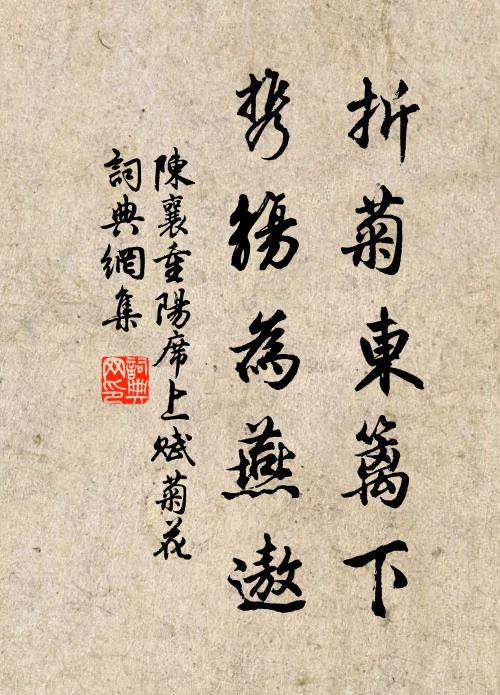 折菊東籬下
携觴為燕遨
陳襄重陽席上賦菊花
詞典網集
詞典网印